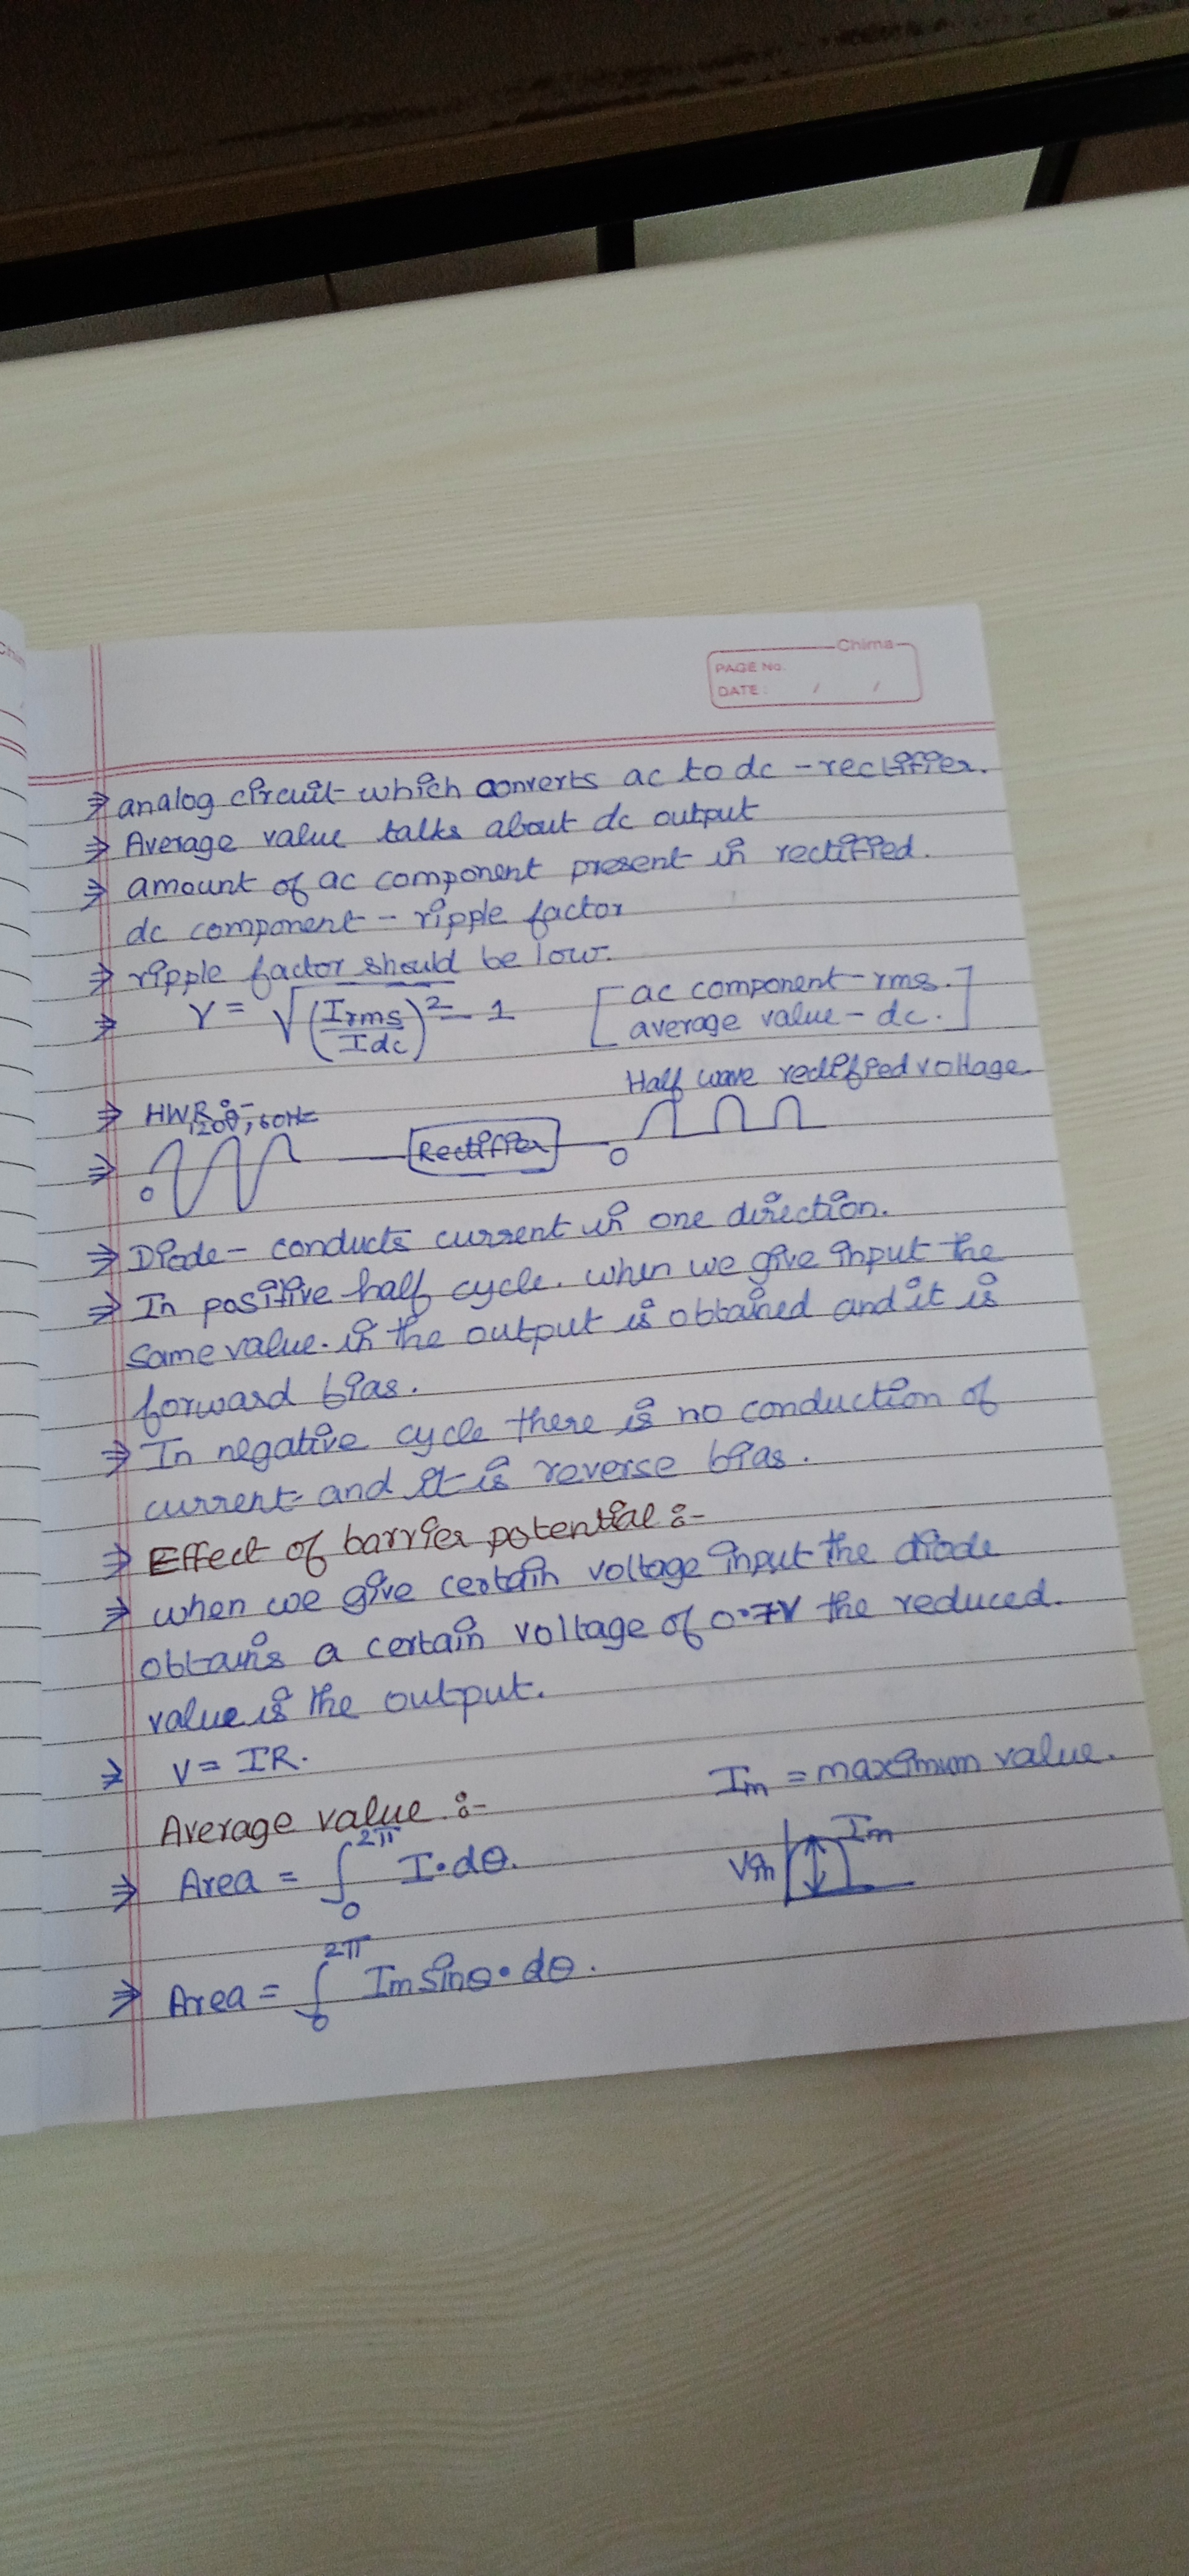 Chima
PAGE No.
DATE: / /
⇒ analog circuit which converts ac to dc - rectifier.
⇒ Average value talks about dc output
⇒ amount of ac component present in rectified.
dc component - ripple factor
⇒ ripple factor should be low.
⇒ γ = √(Irms/Idc)² - 1 [ac component - rms.
average value - dc.]
Half wave rectified voltage.
⇒ HWR :-
120V, 60Hz
⇒ 0 Rectifier 0
⇒ Diode - conducts current in one direction.
⇒ In positive half cycle. when we give input the
same value. in the output is obtained and it is
forward bias.
⇒ In negative cycle there is no conduction of
current and it is reverse bias.
⇒ Effect of barrier potential :-
⇒ when we give certain voltage input the diode
obtains a certain voltage of 0.7V the reduced.
value is the output.
⇒ V = IR. Im = maximum value.
Average value :-
⇒ Area = ∫₀^2π I·dθ. Vin Im
⇒ Area = ∫₀^2π Im sinθ·dθ.